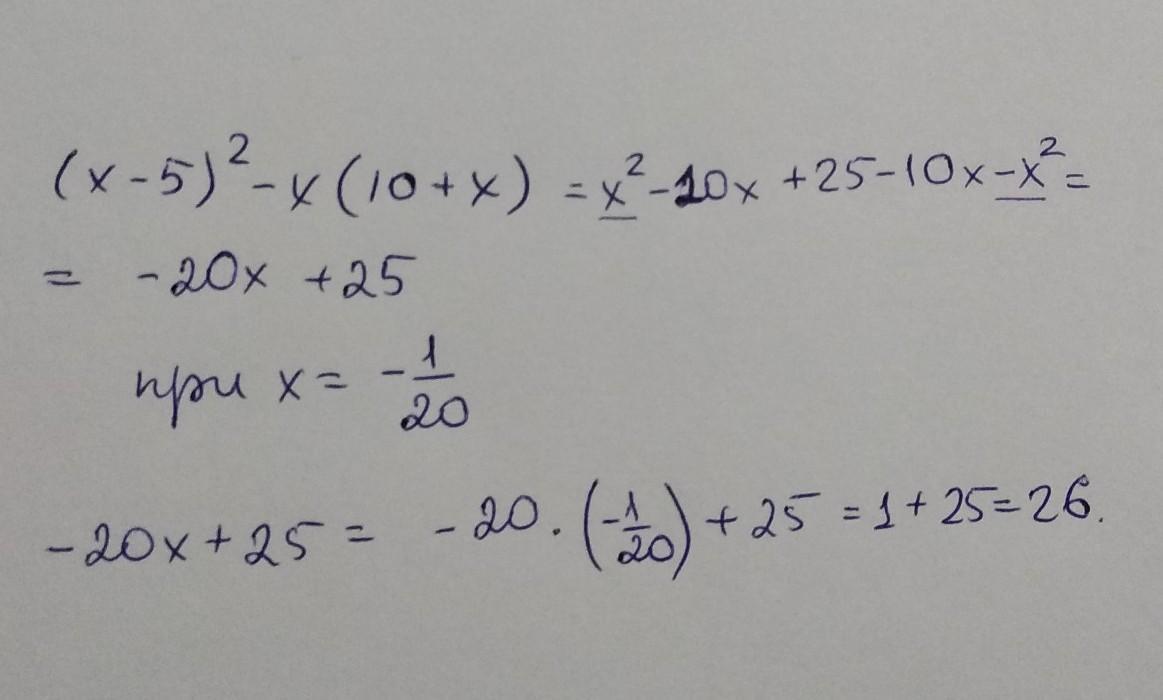 (x-5)² - x(10+x) = x² - 10x + 25 - 10x - x² =
= -20x + 25
при x = -1/20
-20x + 25 = -20 · (-1/20) + 25 = 1 + 25 = 26.